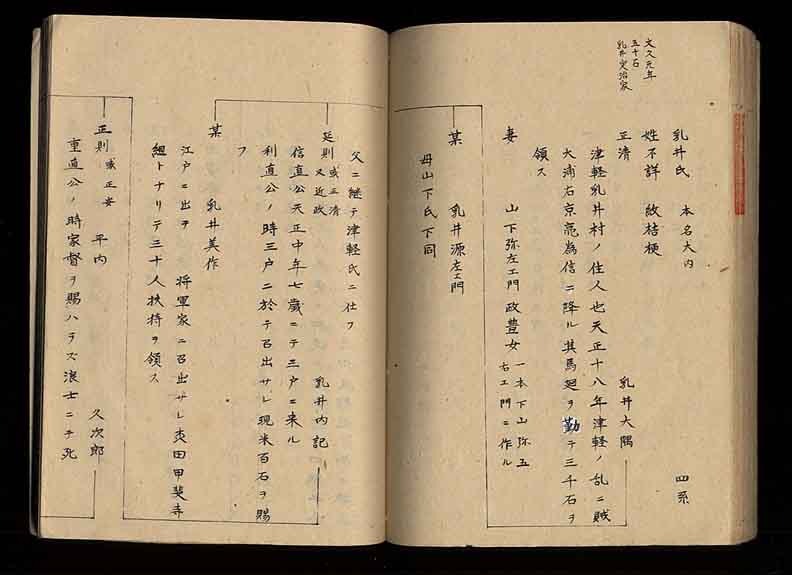 文久元年
五十石
乳井定治家
乳井氏 本名大内 四系
姓不詳 紋桔梗
正清 乳井大隅
津軽乳井村ノ住人也天正十八年津軽ノ乱ニ賊
大浦右京亮為信ニ降ル其馬廻ヲ勤テ三千石ヲ
領ス
妻 山下弥左エ門政豊女 一本下山弥五
右エ門ニ作ル
某 乳井源左エ門
母山下氏下同
父ニ継テ津軽氏ニ仕フ
延則 或正清 乳井内記
又近政
信直公天正中年七歳ニテ三戸ニ来ル
利直公ノ時三戸ニ於テ召出サレ現米百石ヲ賜
フ
某 乳井美作
江戸ニ出テ 将軍家ニ召出サレ 田甲斐守
組トナリテ三十人扶持ヲ領ス
正則 或正安 平内 久次郎
重直公ノ時家督ヲ賜ハラズ浪士ニテ死